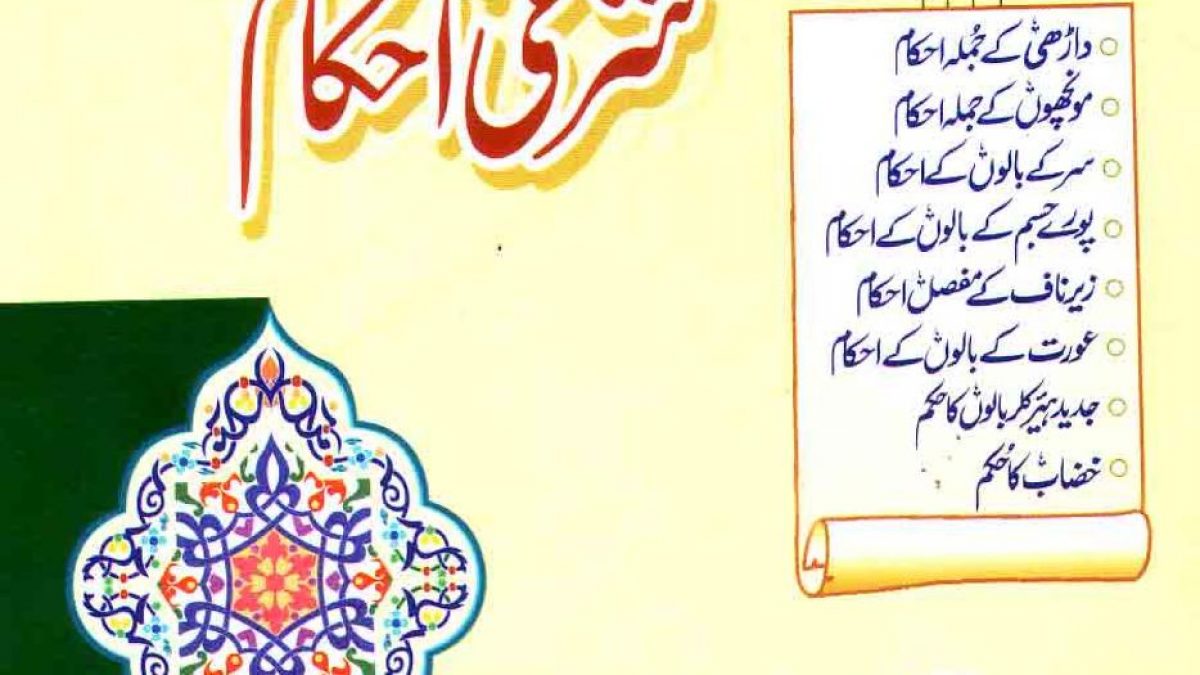 شرعی احکام
داڑھی کے جُملہ احکام
مونچھوں کے جملہ احکام
سر کے بالوں کے احکام
پورے جسم کے بالوں کے احکام
زیرناف کے مفصل احکام
عورت کے بالوں کے احکام
جدید ہیئر کلر بالوں کا حکم
خضاب کا حُکم